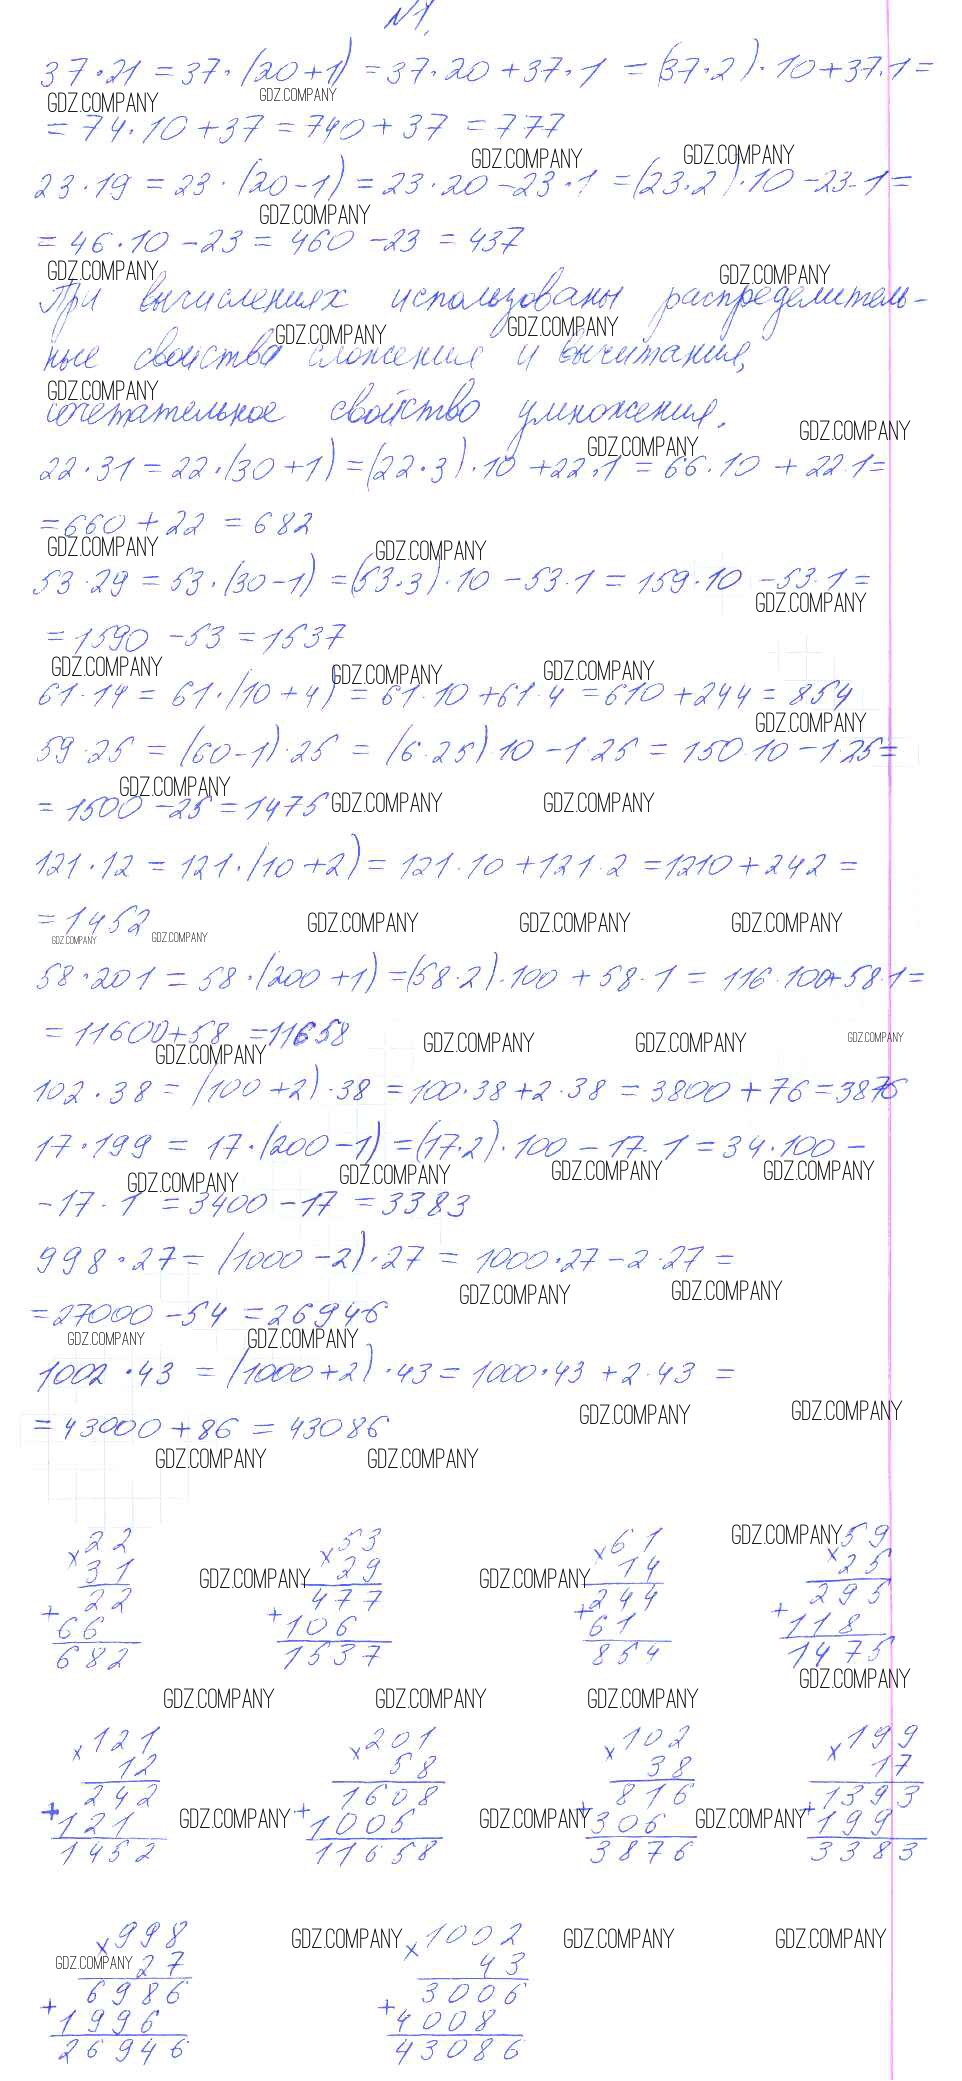 №1.
37·21 = 37·(20+1) = 37·20+37·1 = (37·2)·10+37·1 =
= 74·10+37 = 740+37 = 777
23·19 = 23·(20-1) = 23·20-23·1 = (23·2)·10-23·1 =
= 46·10-23 = 460-23 = 437
При вычислениях использованы распределитель-
ные свойства сложения и вычитания,
сочетательное свойство умножения.
22·31 = 22·(30+1) = (22·3)·10+22·1 = 66·10+22·1 =
= 660+22 = 682
53·29 = 53·(30-1) = (53·3)·10-53·1 = 159·10-53·1 =
= 1590-53 = 1537
61·14 = 61·(10+4) = 61·10+61·4 = 610+244 = 854
59·25 = (60-1)·25 = (6·25)10-1·25 = 150·10-1·25 =
= 1500-25 = 1475
121·12 = 121·(10+2) = 121·10+121·2 = 1210+242 =
= 1452
58·201 = 58·(200+1) = (58·2)·100+58·1 = 116·100+58·1 =
= 11600+58 = 11658
102·38 = (100+2)·38 = 100·38+2·38 = 3800+76 = 3876
17·199 = 17·(200-1) = (17·2)·100-17·1 = 34·100-
-17·1 = 3400-17 = 3383
998·27 = (1000-2)·27 = 1000·27-2·27 =
= 27000-54 = 26946
1002·43 = (1000+2)·43 = 1000·43+2·43 =
= 43000+86 = 43086
×22 ×53 ×61 ×59
31 29 14 25
22 477 244 295
+66 +106 +61 +118
682 1537 854 1475
×121 ×201 ×102 ×199
12 58 38 17
242 1608 816 1393
+121 +1005 +306 +199
1452 11658 3876 3383
×998 ×1002
27 43
6986 3006
+1996 +4008
26946 43086
GDZ.COMPANY